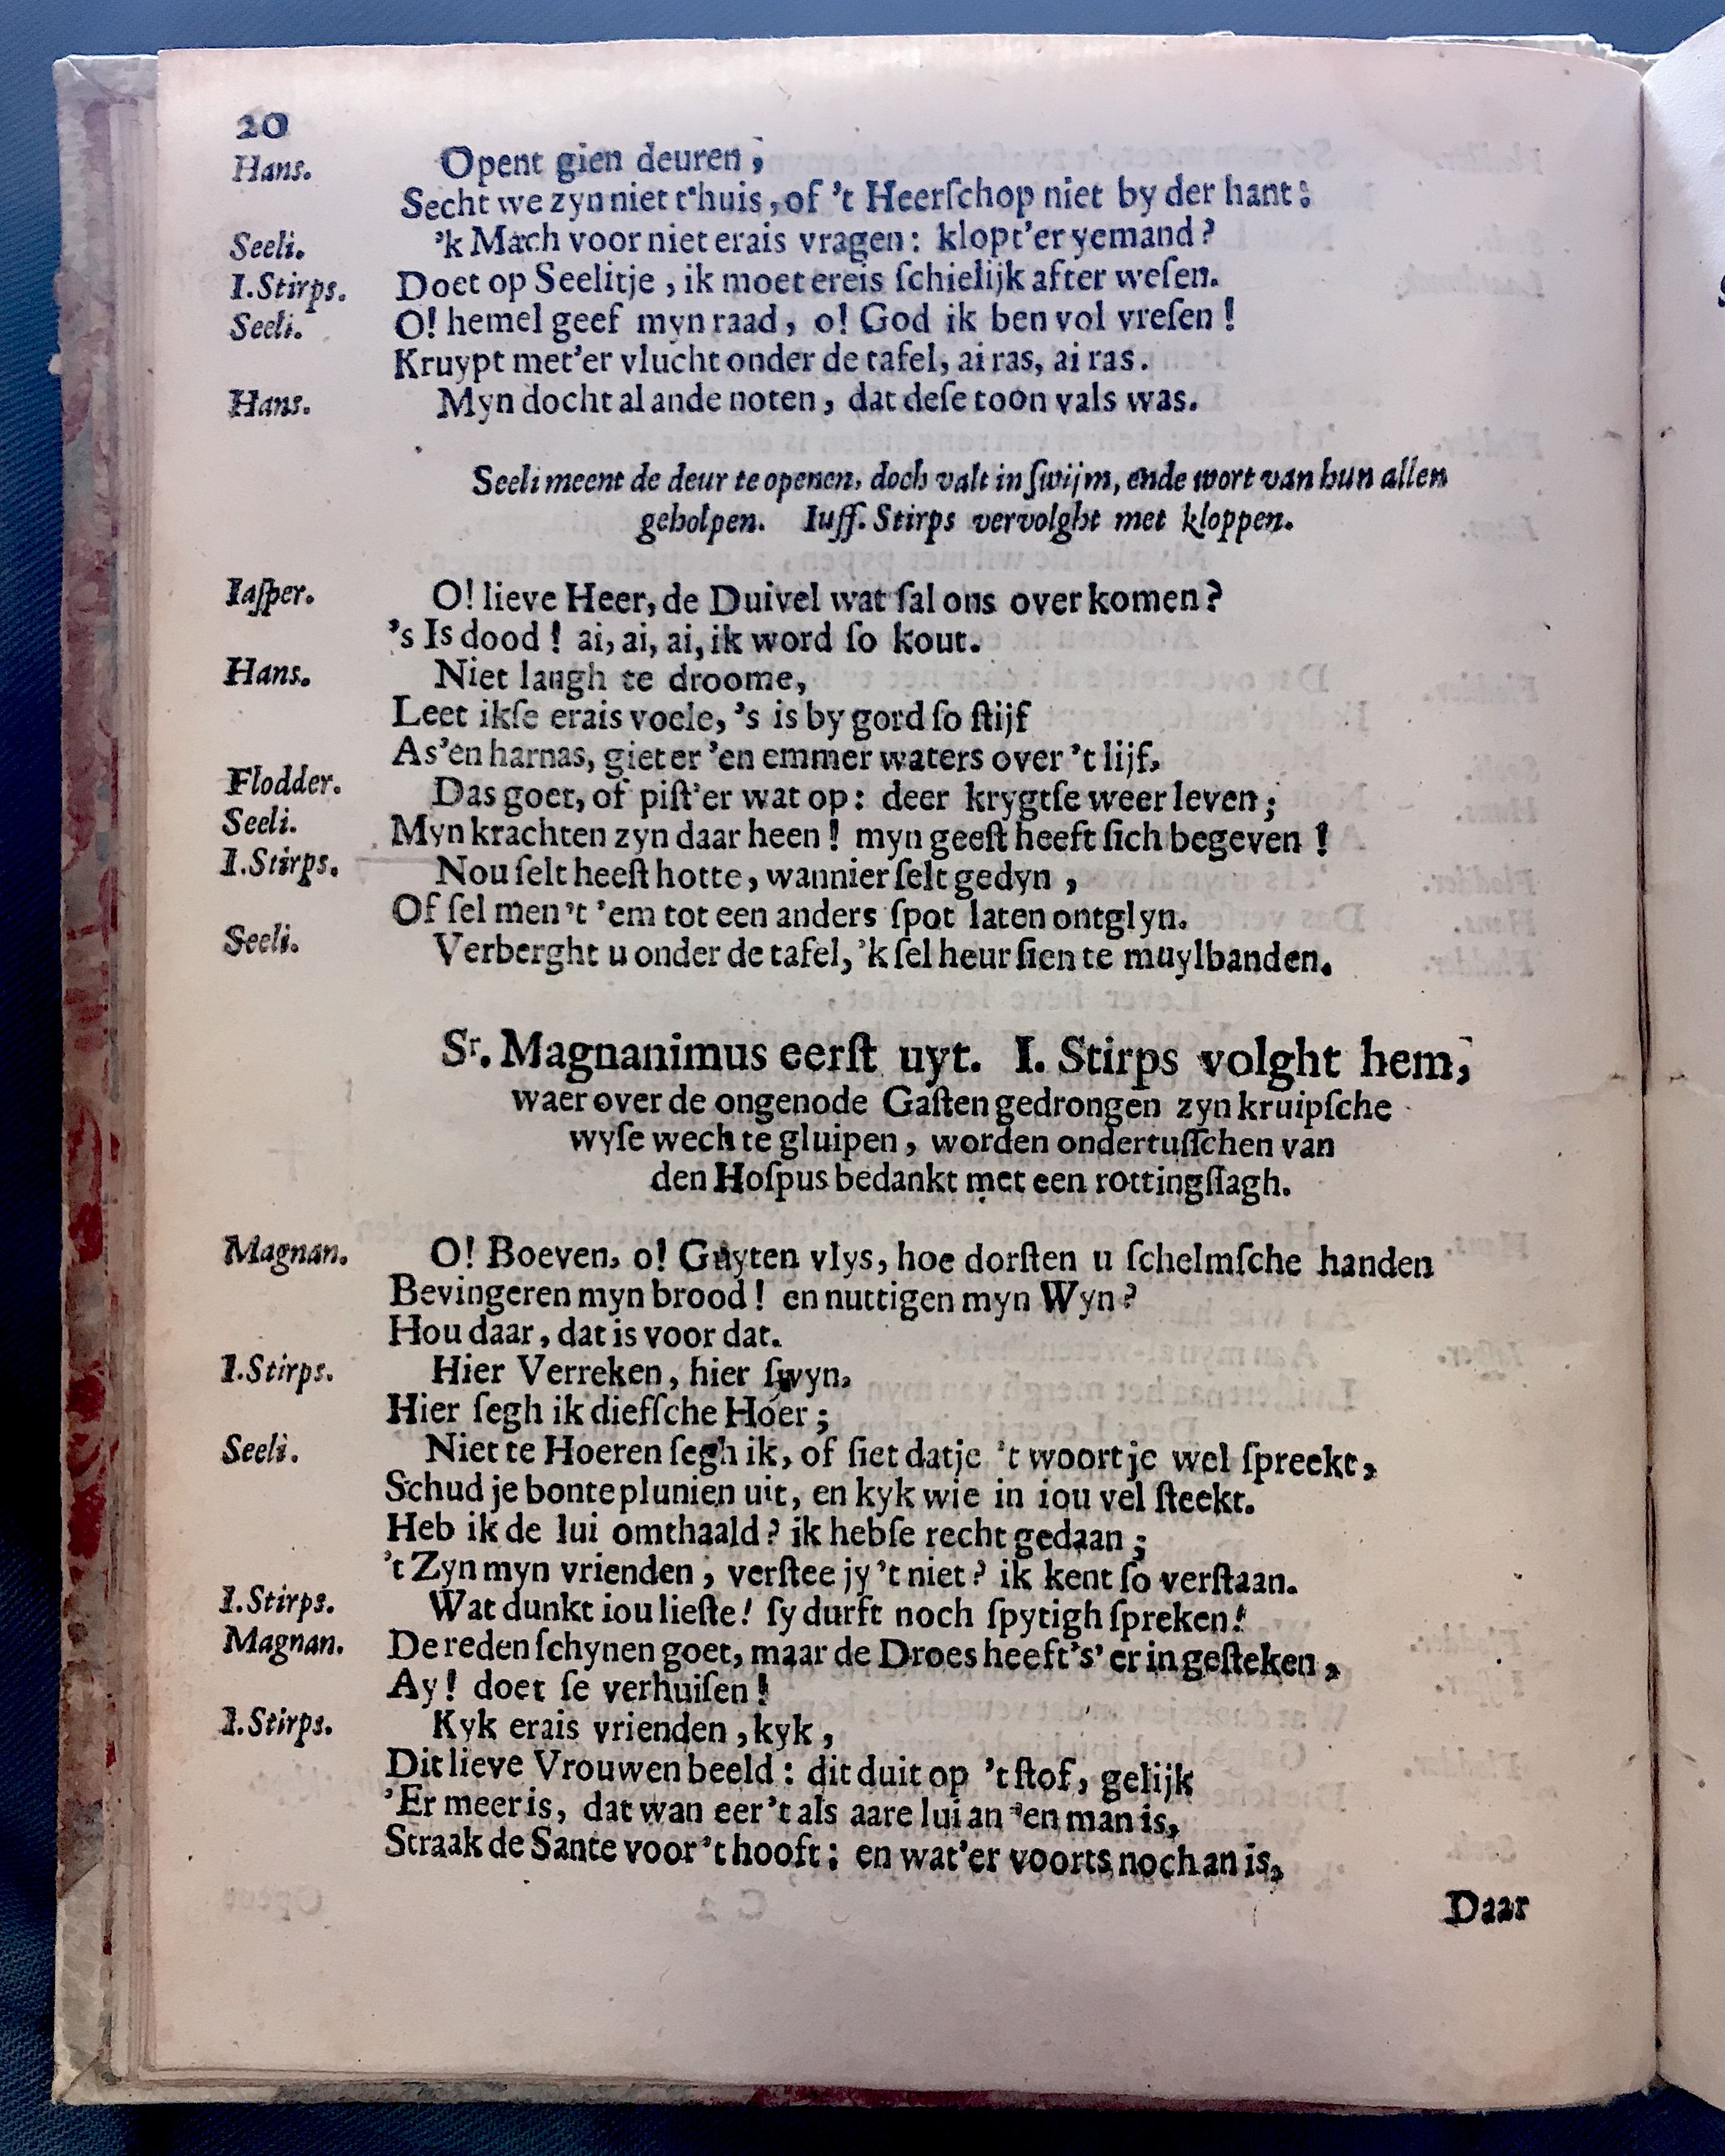 20
Hans. Opent gien deuren,
Secht we zyn niet t'huis, of 't Heerſchop niet by der hant:
Seeli. 'k Mach voor niet erais vragen: klopt'er yemand?
I.Stirps. Doet op Seelitje, ik moet ereis ſchielijk after weſen.
Seeli. O! hemel geef myn raad, o! God ik ben vol vreſen!
Kruypt met'er vlucht onder de tafel, ai ras, ai ras.
Hans. Myn docht al ande noten, dat deſe toon vals was.
Seeli meent de deur te openen, doch valt in ſwijm, ende wort van hun allen
geholpen. Iuff. Stirps vervolght met kloppen.
Iaſper. O! lieve Heer, de Duivel wat ſal ons over komen?
's Is dood! ai, ai, ai, ik word ſo kout.
Hans. Niet langh te droome,
Leet ikſe erais voele, 's is by gord ſo ſtijf
As'en harnas, giet er 'en emmer waters over 't lijf,
Flodder. Das goet, of piſt'er wat op: deer krygtſe weer leven;
Seeli. Myn krachten zyn daar heen! myn geeſt heeft ſich begeven!
I.Stirps. Nou ſelt heeſt hotte, wannier ſelt gedyn,
Of ſel men't 'em tot een anders ſpot laten ontglyn.
Seeli. Verberght u onder de tafel, 'k ſel heur ſien te muylbanden.
Sr. Magnanimus eerſt uyt. I. Stirps volght hem,
waer over de ongenode Gaſten gedrongen zyn kruipſche
wyſe wech te gluipen, worden ondertuſſchen van
den Hoſpus bedankt met een rottingſlagh.
Magnan. O! Boeven, o! Guyten vlys, hoe dorſten u ſchelmſche handen
Bevingeren myn brood! en nuttigen myn Wyn?
Hou daar, dat is voor dat.
I.Stirps. Hier Verreken, hier ſwyn,
Hier ſegh ik diefſche Hoer;
Seeli. Niet te Hoeren ſegh ik, of ſiet datje 't woortje wel ſpreekt,
Schud je bonte plunien uit, en kyk wie in iou vel ſteekt.
Heb ik de lui omthaald? ik hebſe recht gedaan;
't Zyn myn vrienden, verſtee jy 't niet? ik kent ſo verſtaan.
I.Stirps. Wat dunkt iou lieſte! ſy durft noch ſpytigh ſpreken!
Magnan. De reden ſchynen goet, maar de Droes heeft's' er in geſteken,
Ay! doet ſe verhuiſen!
I.Stirps. Kyk erais vrienden, kyk,
Dit lieve Vrouwen beeld: dit duit op 't ſtof, gelijk
'Er meer is, dat wan eer 't als aare lui an 'en man is,
Straak de Sante voor 't hooft; en wat'er voorts noch an is,
Daar